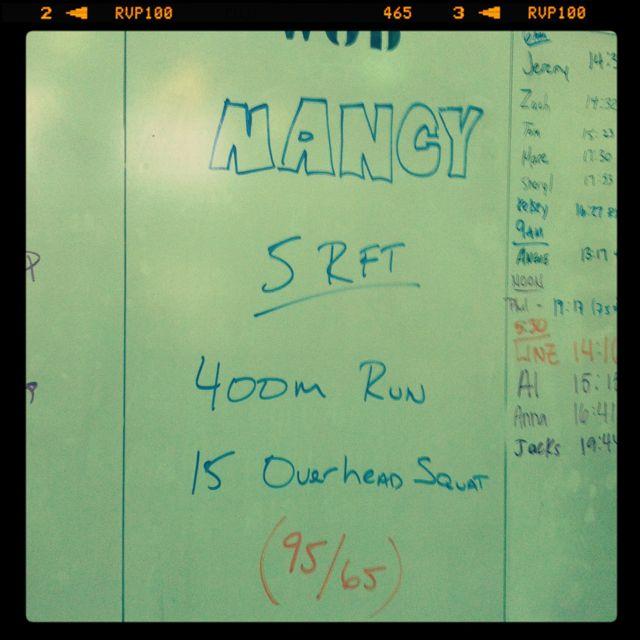 2 RVP100 465 3 RVP100
WOD
NANCY
5 RFT
400m Run
15 Overhead Squat
(95/65)
Jeremy 14:3
Zach 14:32
Tom 15:23
17:30
Sheryl 17:33
16:27
9am
Angie 13:17
NOON
Phil - 19:17 (75
5:30
14:10
Al 15:15
Anna 16:41
Jacks 19:44